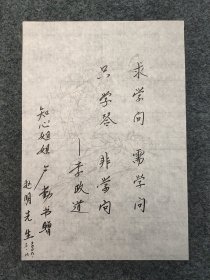 求学问 需学问
只学答 非学问
—李政道
知心姐姐 卢勤书赠
赵明先生